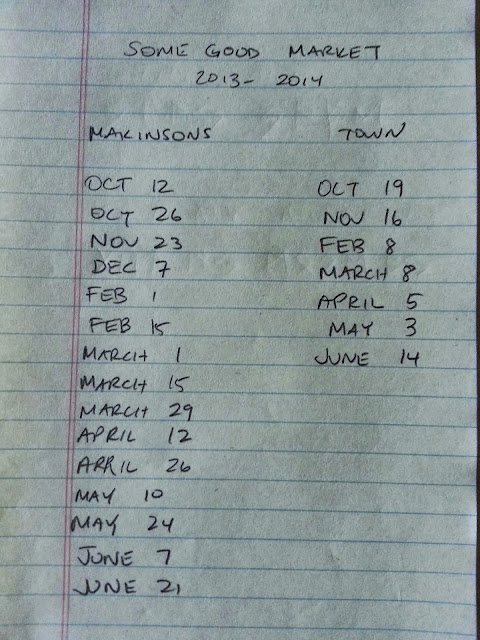 SOME GOOD MARKET
2013- 2014
MAKINSONS TOWN
OCT 12 OCT 19
OCT 26 NOV 16
NOV 23 FEB 8
DEC 7 MARCH 8
FEB 1 APRIL 5
FEB 15 MAY 3
MARCH 1 JUNE 14
MARCH 15
MARCH 29
APRIL 12
APRIL 26
MAY 10
MAY 24
JUNE 7
JUNE 21